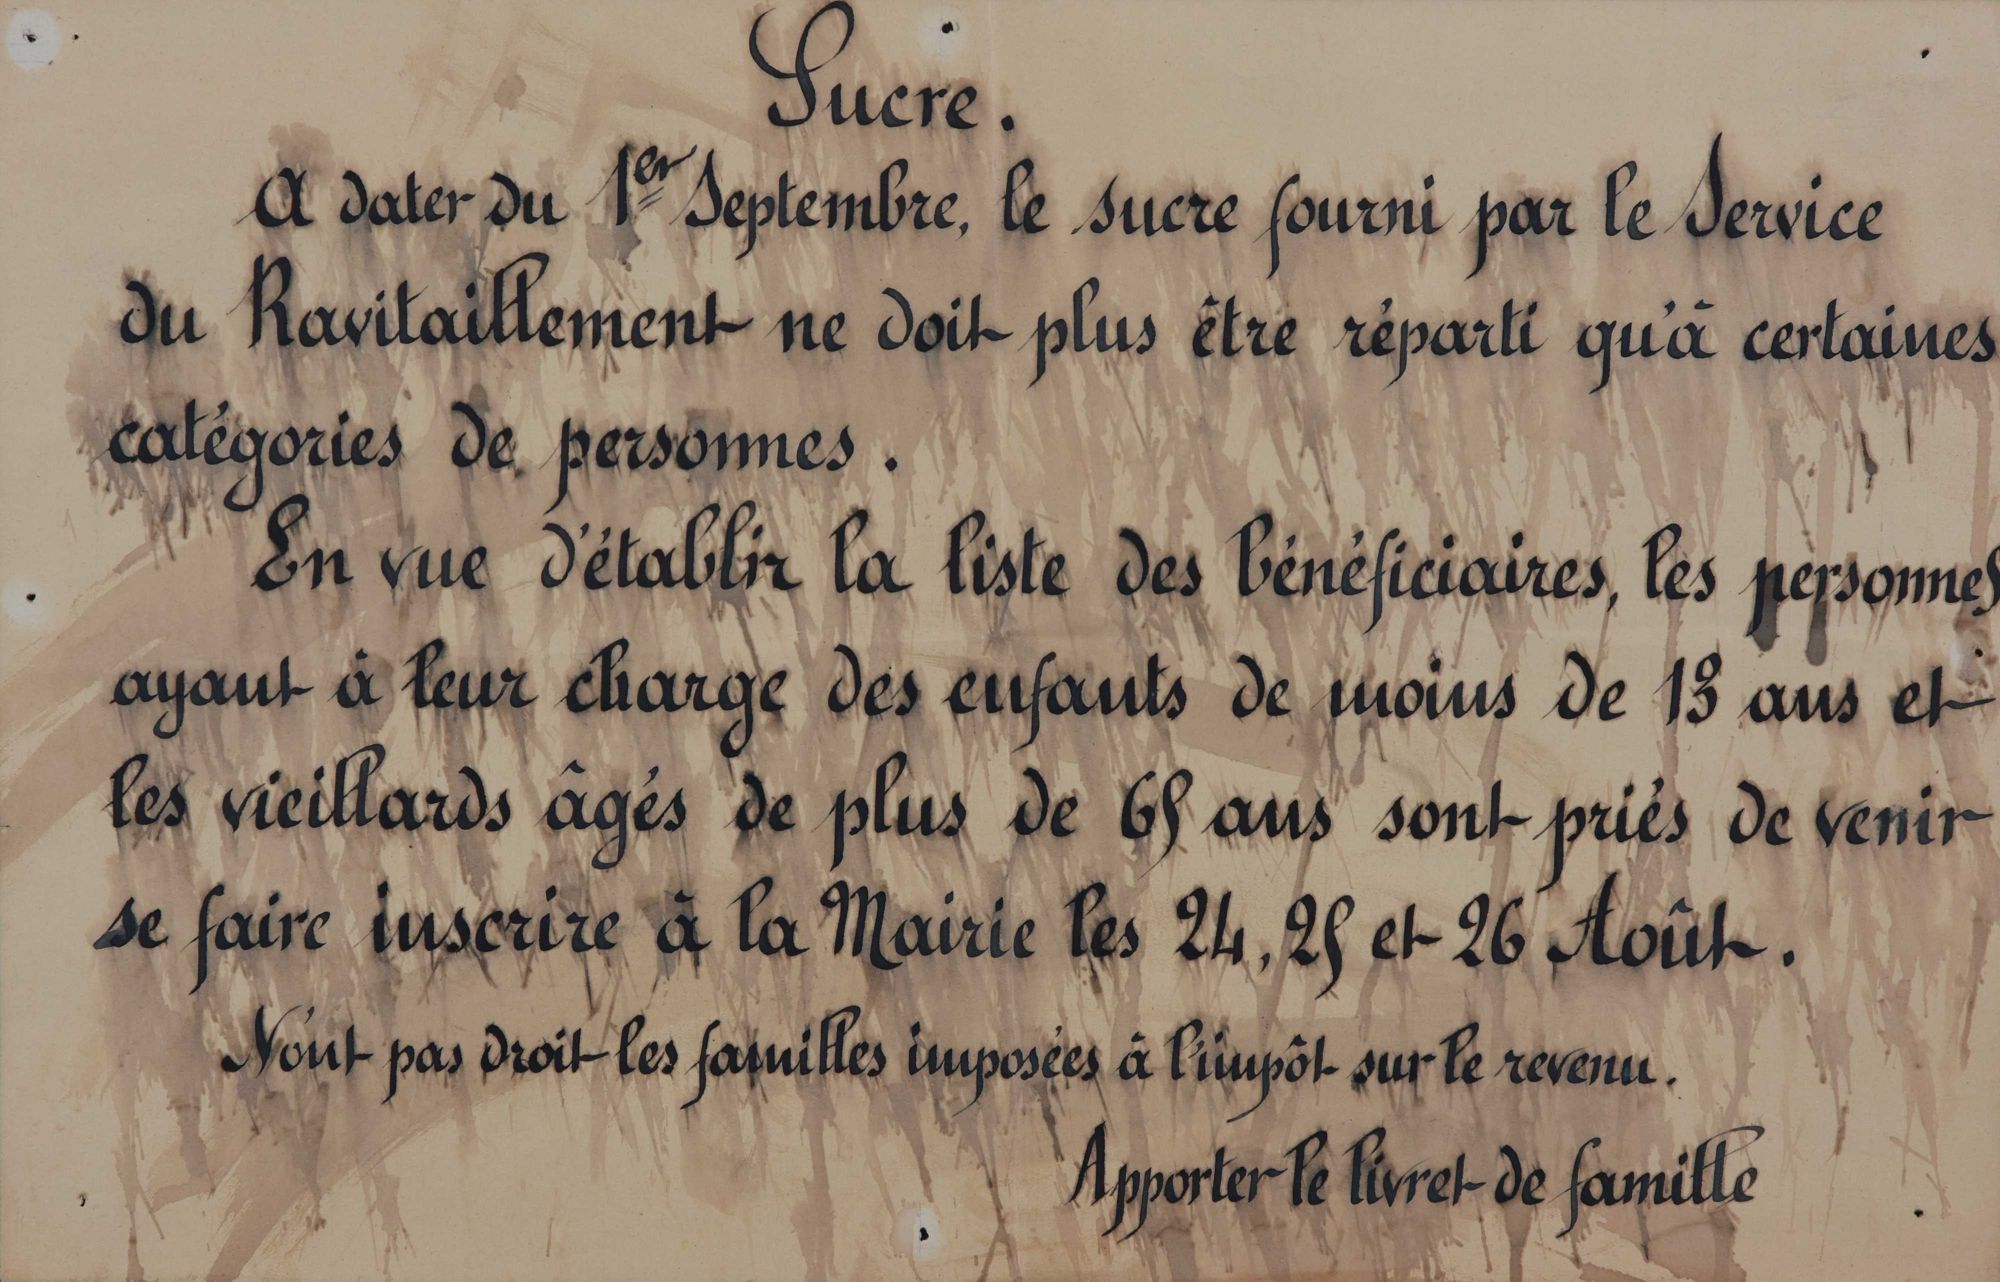 Sucre.
A dater du 1er Septembre, le sucre fourni par le Service
du Ravitaillement ne doit plus être réparti qu'à certaines
catégories de personnes.
En vue d'établir la liste des bénéficiaires, les personnes
ayant à leur charge des enfants de moins de 13 ans et
les vieillards âgés de plus de 65 ans sont priés de venir
se faire inscrire à la Mairie les 24, 25 et 26 Août.
N'ont pas droit les familles imposées à l'impôt sur le revenu.
Apporter le livret de famille